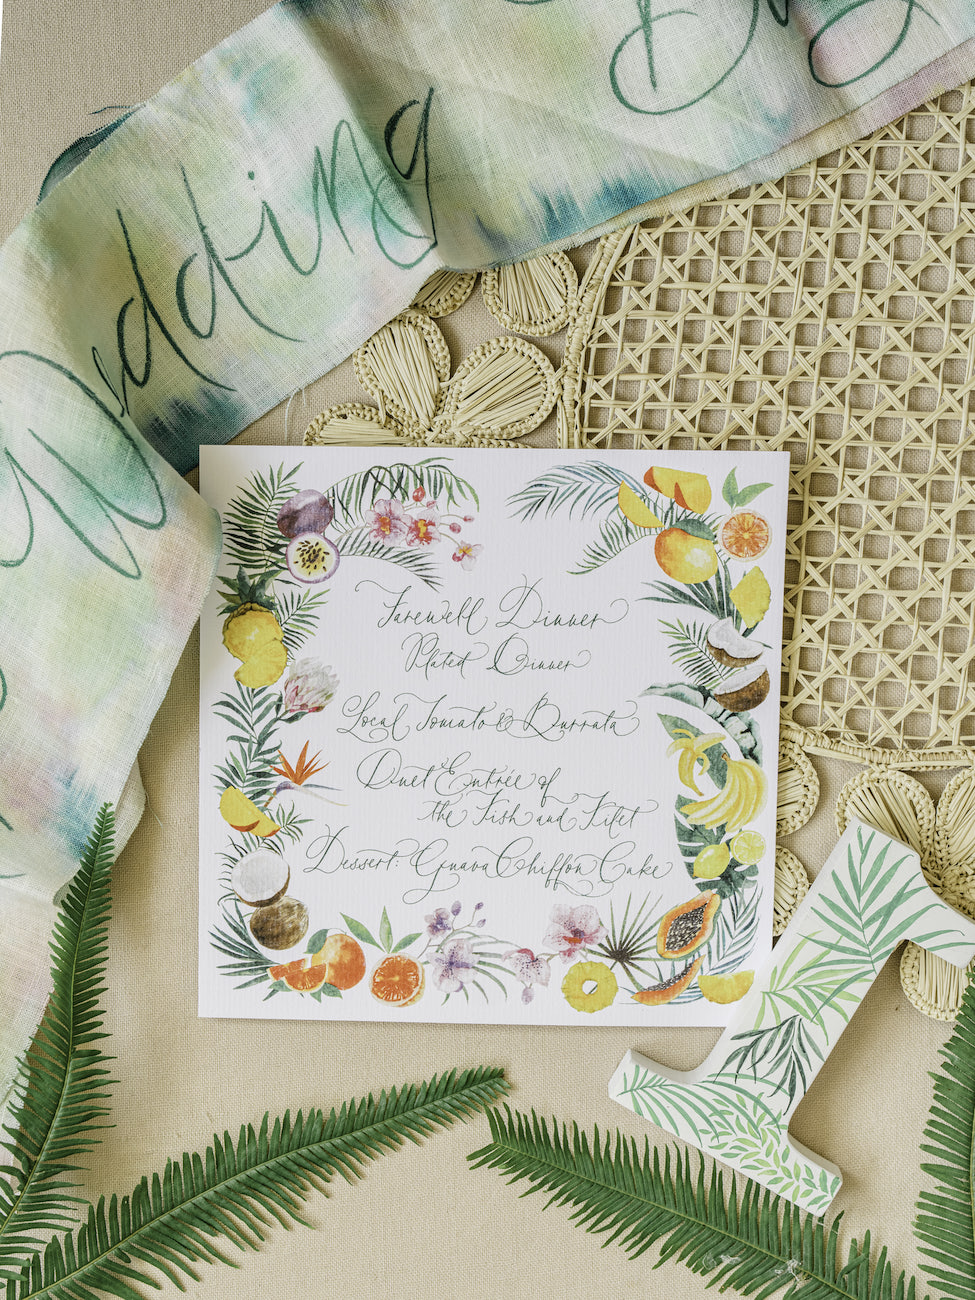 Wedding
Farewell Dinner
Plated Dinner
Local Tomato & Burrata
Duet Entrée of
the Fish and Filet
Dessert: Guava Chiffon Cake